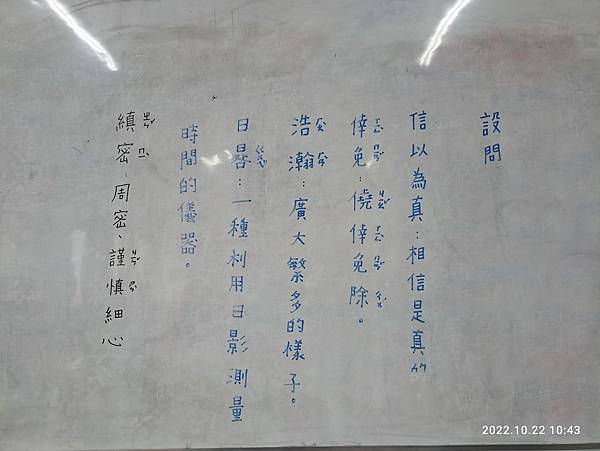 設問
信以為真：相信是真的
倖免：僥倖免除。
浩瀚：廣大繁多的樣子。
日晷：一種利用日影測量
時間的儀器。
縝密：周密、謹慎細心
2022.10.22 10:43